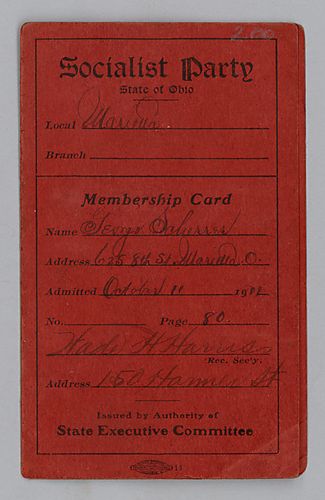 2.00
Socialist Party
State of Ohio
Local Marietta
Branch
Membership Card
Name George
Address 625 8th St. Marietta, O.
Admitted October 11 19
No. Page 80.
Wade H Harris
Rec. Sec'y.
Address 150 Harmer St
Issued by Authority of
State Executive Committee
11